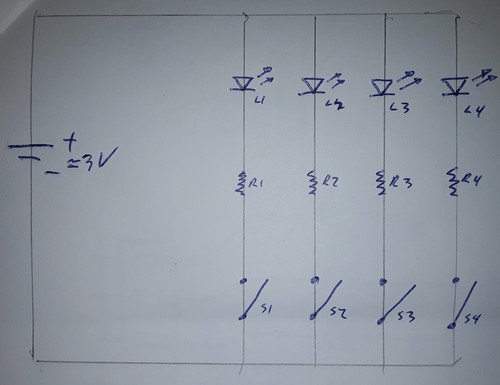 L1 L2 L3 L4
+
- ≈3V
R1 R2 R3 R4
S1 S2 S3 S4